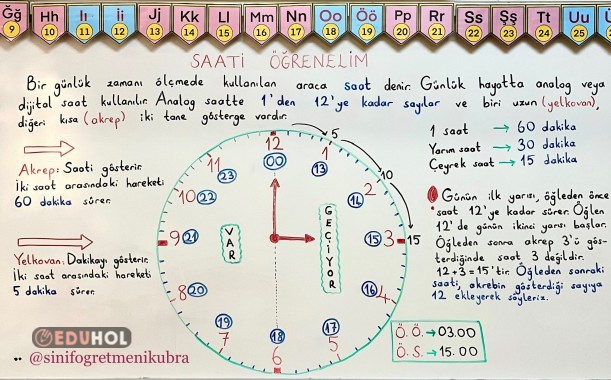 Ğğ Hh Iı İi Jj Kk Ll Mm Nn Oo Öö Pp Rr Ss Şş Tt Uu
9 10 11 12 13 14 15 16 17 18 19 20 21 22 23 24 25
SAATİ ÖĞRENELİM
Bir günlük zamanı ölçmede kullanılan araca saat denir. Günlük hayatta analog veya
dijital saat kullanılır. Analog saatte 1'den 12'ye kadar sayılar ve biri uzun (yelkovan),
diğeri kısa (akrep) iki tane gösterge vardır.
1 saat → 60 dakika
Yarım saat → 30 dakika
Çeyrek saat → 15 dakika
Akrep: Saati gösterir.
İki saat arasındaki hareketi
60 dakika sürer.
Yelkovan: Dakikayı gösterir.
İki saat arasındaki hareketi
5 dakika sürer.
12 00
1 13 5
2 14 10
3 15 15
4 16
5 17
6 18
7 19
8 20
9 21
10 22
11 23
VAR
GEÇİYOR
Günün ilk yarısı, öğleden önce
saat 12'ye kadar sürer. Öğlen
12'de günün ikinci yarısı başlar.
Öğleden sonra akrep 3'ü gös-
terdiğinde saat 3 değildir.
12+3=15'tir. Öğleden sonraki
saati, akrebin gösterdiği sayıya
12 ekleyerek söyleriz.
Ö.Ö. → 03.00
Ö.S. → 15.00
EDUHOL
@sinifogretmenikubra